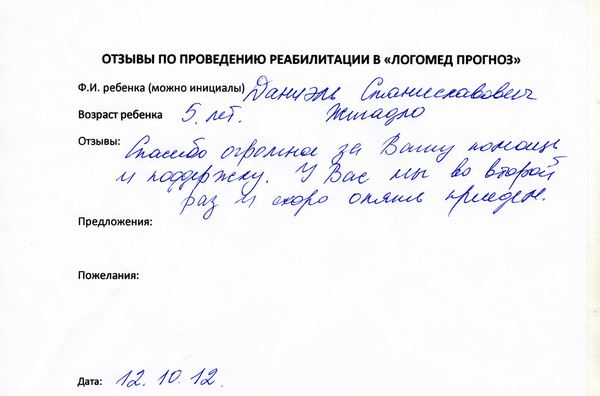 ОТЗЫВЫ ПО ПРОВЕДЕНИЮ РЕАБИЛИТАЦИИ В «ЛОГОМЕД ПРОГНОЗ»
Ф.И. ребенка (можно инициалы) Даниэль Станиславович
Возраст ребенка 5 лет.
Отзывы: Спасибо огромное за Вашу помощь
и поддержку. У Вас мы во второй
раз и скоро опять приедем.
Предложения:
Пожелания:
Дата: 12.10.12.